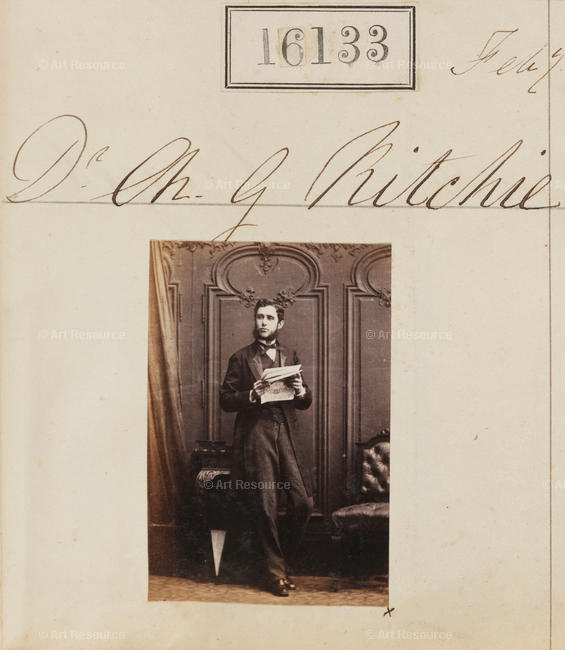 16133
Feb 7.
Dr Ch. G Ritchie
x
© Art Resource
© Art Resource
© Art Resource
© Art Resource
© Art Resource
© Art Resource
© Art Resource
© Art Resource